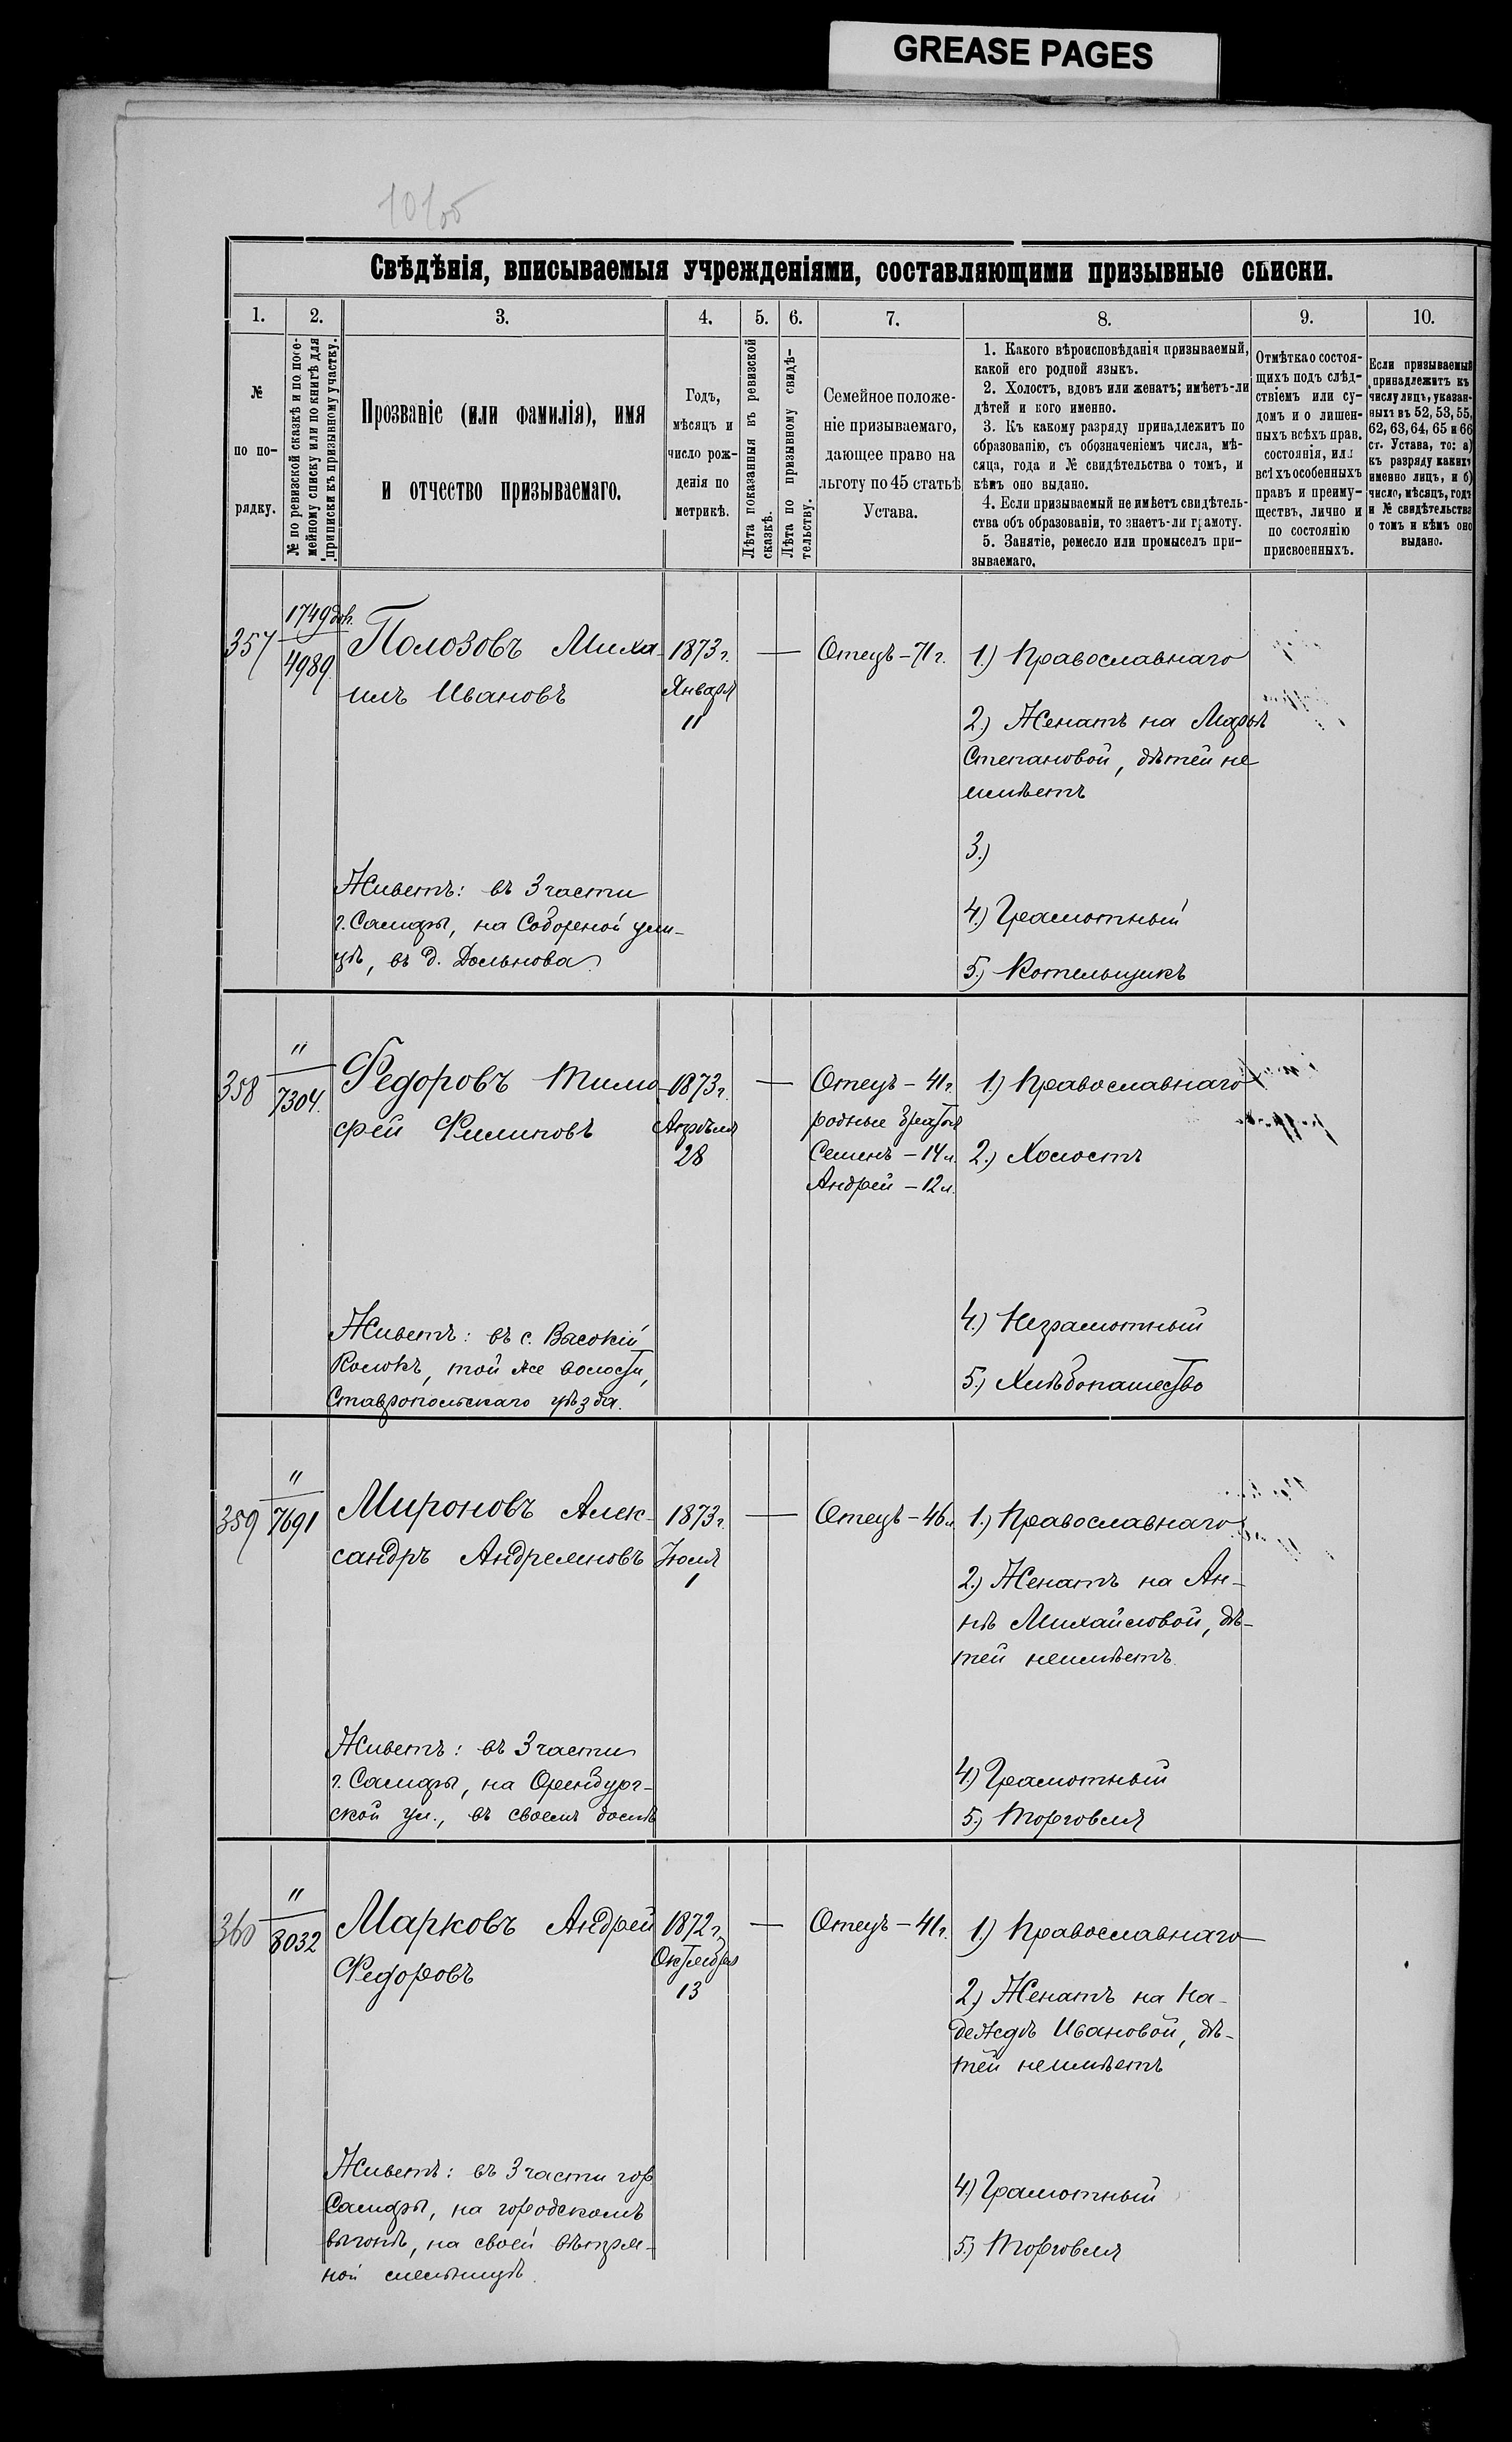 GREASE PAGES
101об
Свѣдѣнія, вписываемыя учрежденіями, составляющими призывные списки.
1.
2.
3.
4.
5.
6.
7.
8.
9.
10.
№
по по-
рядку.
№ по ревизской сказкѣ и по посе-
мейному списку или по книгѣ для
приписки къ призывному участку.
Прозваніе (или фамилія), имя
и отчество призываемаго.
Годъ,
мѣсяцъ и
число рож-
денія по
метрикѣ.
Лѣта показанныя въ ревизской
сказкѣ.
Лѣта по призывному свидѣ-
тельству.
Семейное положе-
ніе призываемаго,
дающее право на
льготу по 45 статьѣ
Устава.
1. Какого вѣроисповѣданія призываемый,
какой его родной языкъ.
2. Холостъ, вдовъ или женатъ; имѣетъ-ли
дѣтей и кого именно.
3. Къ какому разряду принадлежитъ по
образованію, съ обозначеніемъ числа, мѣ-
сяца, года и № свидѣтельства о томъ, и
кѣмъ оно выдано.
4. Если призываемый не имѣетъ свидѣтель-
ства объ образованіи, то знаетъ-ли грамоту.
5. Занятіе, ремесло или промыселъ при-
зываемаго.
Отмѣтка о состоя-
щихъ подъ слѣд-
ствіемъ или су-
домъ и о лишен-
ныхъ всѣхъ прав.
состоянія, или
всѣхъ особенныхъ
правъ и преиму-
ществъ, лично и
по состоянію
присвоенныхъ.
Если призываемый
принадлежитъ къ
числу лицъ, указан-
ныхъ въ 52, 53, 55,
62, 63, 64, 65 и 66
ст. Устава, то: а)
къ разряду какихъ
именно лицъ, и б)
число, мѣсяцъ, годъ
и № свидѣтельства
о томъ и кѣмъ оно
выдано.
357
1749 доп.
4989.
Полозовъ Миха-
илъ Ивановъ
1873 г.
Января
11
—
Отецъ – 71 г.
1.) Православнаго
2.) Женатъ на Марьѣ
Степановой, дѣтей не
имѣетъ
3.)
4.) Грамотный
5.) Котельщикъ
Живетъ: въ 3 части
г. Самары, на Соборной ули-
цѣ, въ д. Дольнова.
358
"
7304.
Федоровъ Тимо-
фей Филиповъ
1873 г.
Апрѣля
28
—
Отецъ – 41 г.
родные братья
Семенъ – 14 л.
Андрей – 12 л.
1.) Православнаго
2.) Холостъ
4.) Неграмотный
5.) Хлѣбопашество
Живетъ: въ с. Васокій
Колокъ, той же волости,
Ставропольскаго уѣзда.
359
"
7691
Мироновъ Алек-
сандръ Андреяновъ
1873 г.
Іюля
1
—
Отецъ – 46 л.
1.) Православнаго
2.) Женатъ на Ан-
нѣ Михайловой, дѣ-
тей неимѣетъ.
4.) Грамотный
5.) Торговля
Живетъ: въ 3 части
г. Самары, на Оренбург-
ской ул., въ своемъ домѣ
360
"
8032
Марковъ Андрей
Федоровъ
1872 г.
Октября
13
—
Отецъ – 41 г.
1.) Православнаго
2.) Женатъ на На-
деждѣ Ивановой, дѣ-
тей неимѣетъ
4.) Грамотный
5.) Торговля
Живетъ: въ 3 части гор.
Самары, на городскомъ
выгонѣ, на своей вѣтрян-
ной мельницѣ.